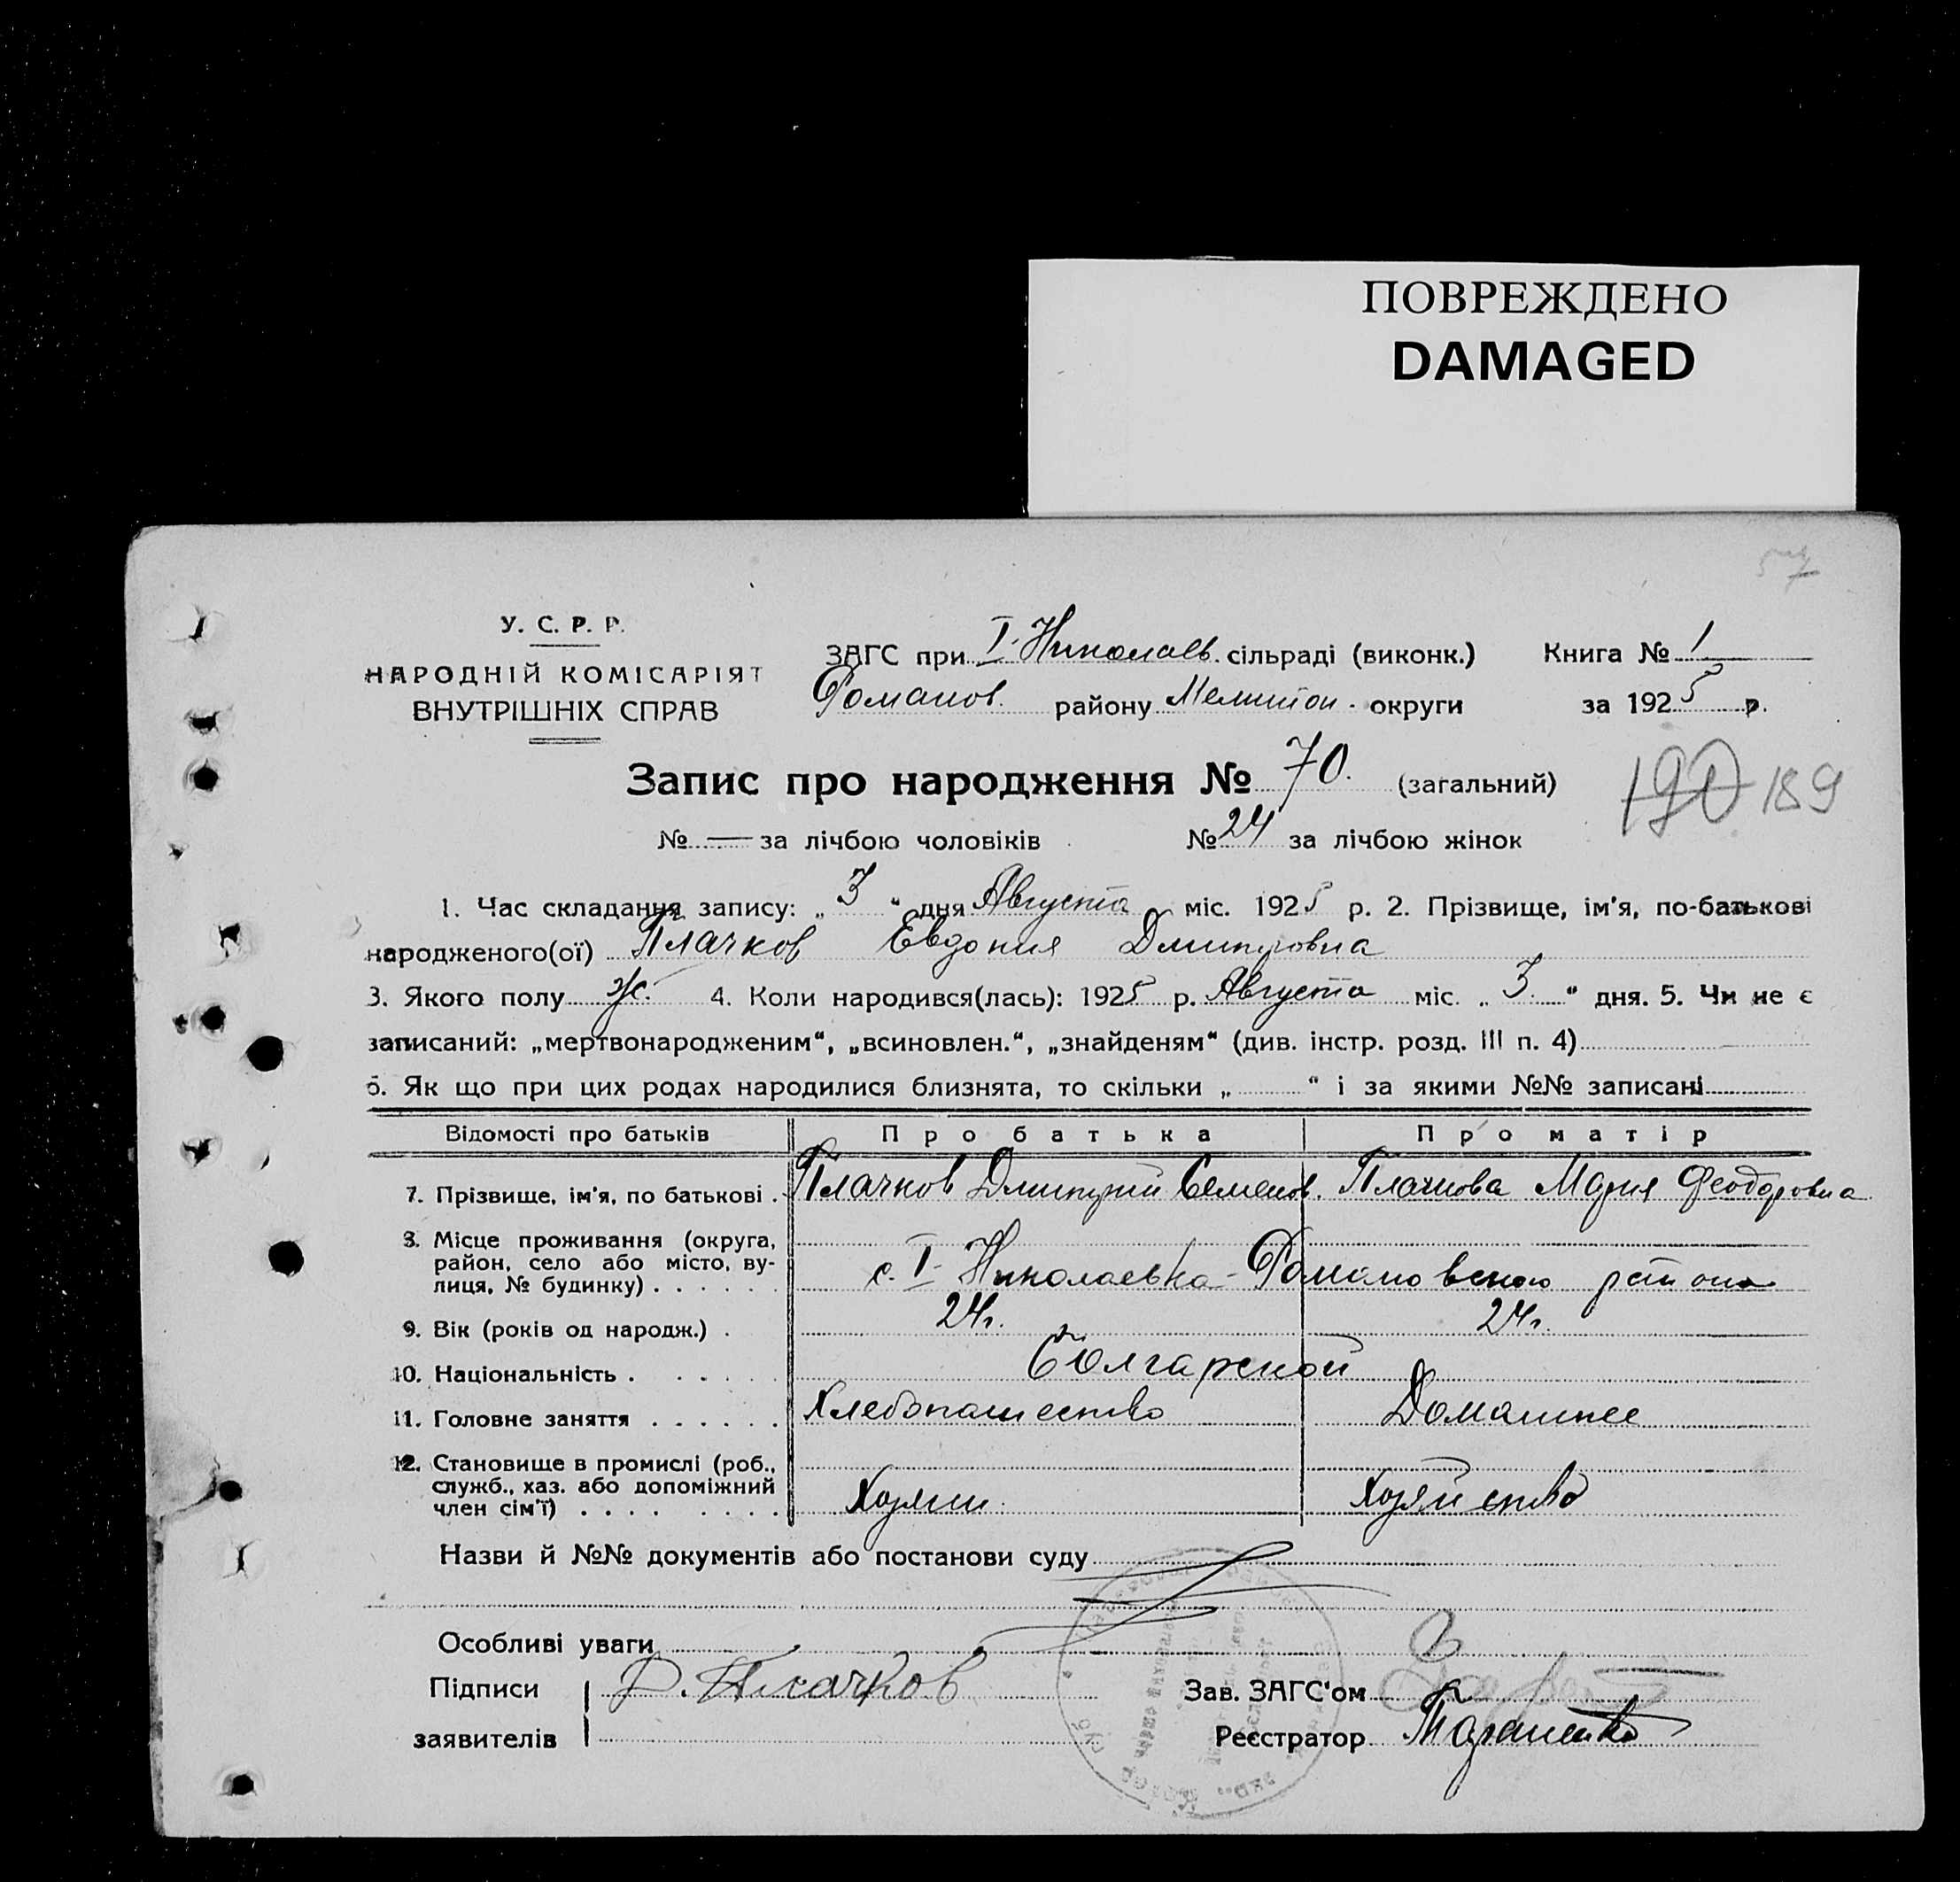 ПОВРЕЖДЕНО
DAMAGED
57
У. С. Р. Р.
НАРОДНІЙ КОМІСАРІЯТ
ВНУТРІШНІХ СПРАВ
ЗАГС при I-Николаев. сільраді (виконк.) Книга № 1
Романов. району Мелитоп. округи за 1925 р.
Запис про народження № 70. (загальний)
190 189
№ — за лічбою чоловіків № 24 за лічбою жінок
1. Час складання запису: „3“ дня Августа міс. 1925 р. 2. Прізвище, ім'я, по-батькові
народженого(ої) Плачков Евдокия Дмитровна
3. Якого полу ж. 4. Коли народився(лась): 1925 р. Августа міс. „3.“ дня. 5. Чи не є
записаний: „мертвонародженим“, „всиновлен.“, „знайденям“ (див. інстр. розд. III п. 4)
6. Як що при цих родах народилися близнята, то скільки „ “ і за якими №№ записані
Відомості про батьків Про батька Про матір
7. Прізвище, ім'я, по батькові . Плачков Дмитрий Семенов. Плачкова Мария Феодоровна
8. Місце проживання (округа,
район, село або місто, ву-
лиця, № будинку) . . . . . . с. I-Николаевка-Романовского района
9. Вік (років од народж.) . 24 г. 24 г.
10. Національність . . . . . . Болгарской
11. Головне заняття . . . . . . Хлебопашество Домашнее
12. Становище в промислі (роб.,
служб., хаз. або допоміжний
член сім'ї) . . . . . . . . Хозяин. Хозяйство
Назви й №№ документів або постанови суду
Особливі уваги
Підписи Д. Плачков Зав. ЗАГС'ом
заявителів Реєстратор